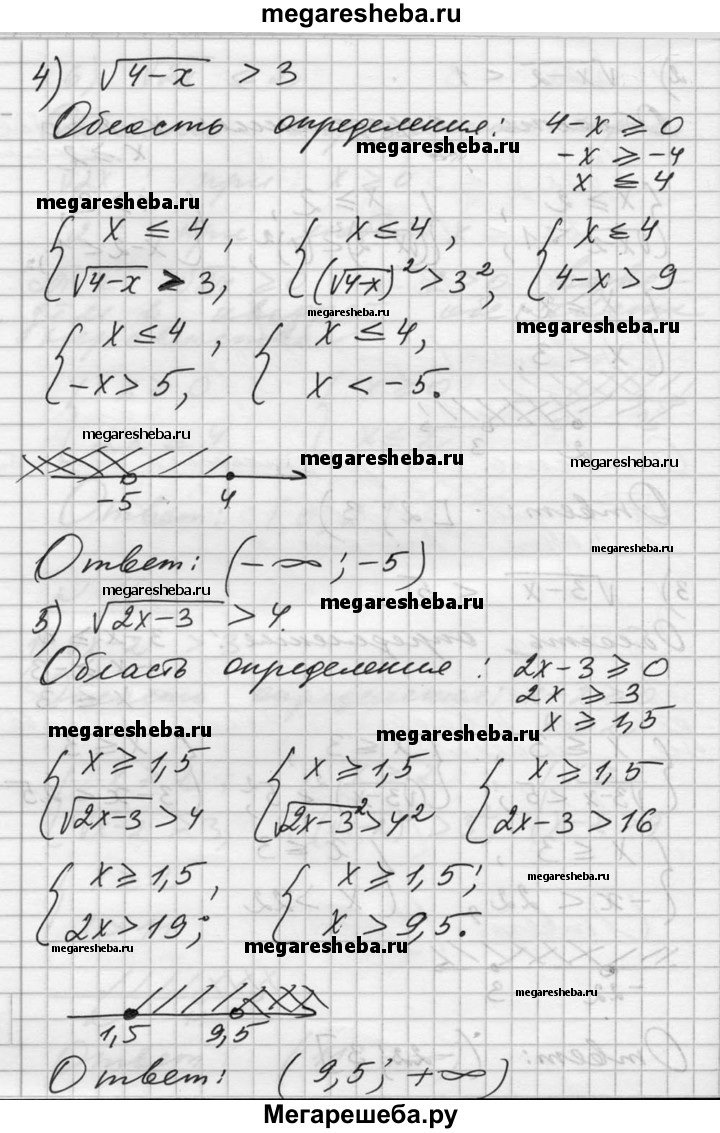 megaresheba.ru
4) √(4-x) > 3
Область определения: 4-x ≥ 0
megaresheba.ru
-x ≥ -4
x ≤ 4
megaresheba.ru
{ x ≤ 4, { x ≤ 4, { x ≤ 4
√(4-x) > 3, (√(4-x))² > 3², 4-x > 9
megaresheba.ru
megaresheba.ru
{ x ≤ 4, { x ≤ 4,
-x > 5, x < -5.
megaresheba.ru
megaresheba.ru
megaresheba.ru
-5 4
Ответ: (-∞; -5)
megaresheba.ru
megaresheba.ru
megaresheba.ru
5) √(2x-3) > 4.
Область определения: 2x-3 ≥ 0
2x ≥ 3
x ≥ 1,5
megaresheba.ru
megaresheba.ru
{ x ≥ 1,5 { x ≥ 1,5 { x ≥ 1,5
√(2x-3) > 4 √(2x-3)² > 4² 2x-3 > 16
{ x ≥ 1,5, { x ≥ 1,5;
megaresheba.ru
2x > 19; x > 9,5.
megaresheba.ru
megaresheba.ru
megaresheba.ru
1,5 9,5
Ответ: (9,5; +∞)
Мегарешеба.ру